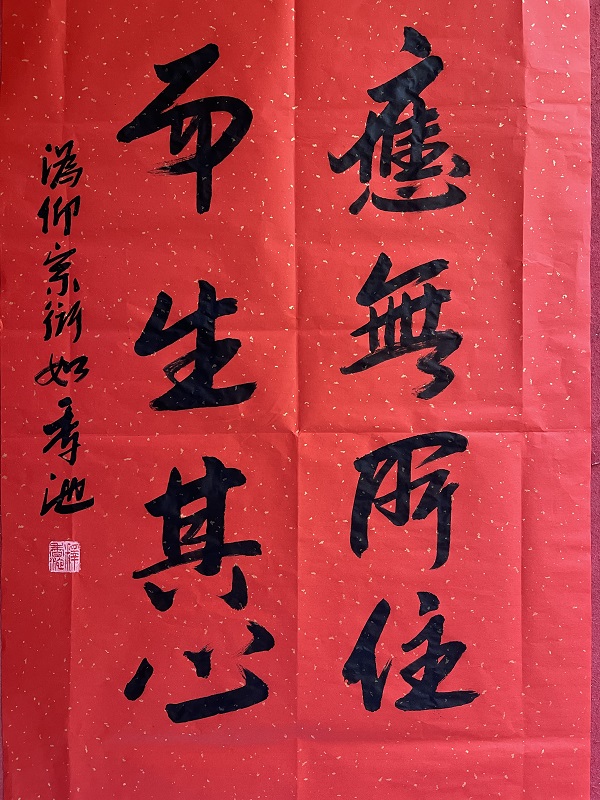 應無所住
而生其心
溈仰宗衍如季池